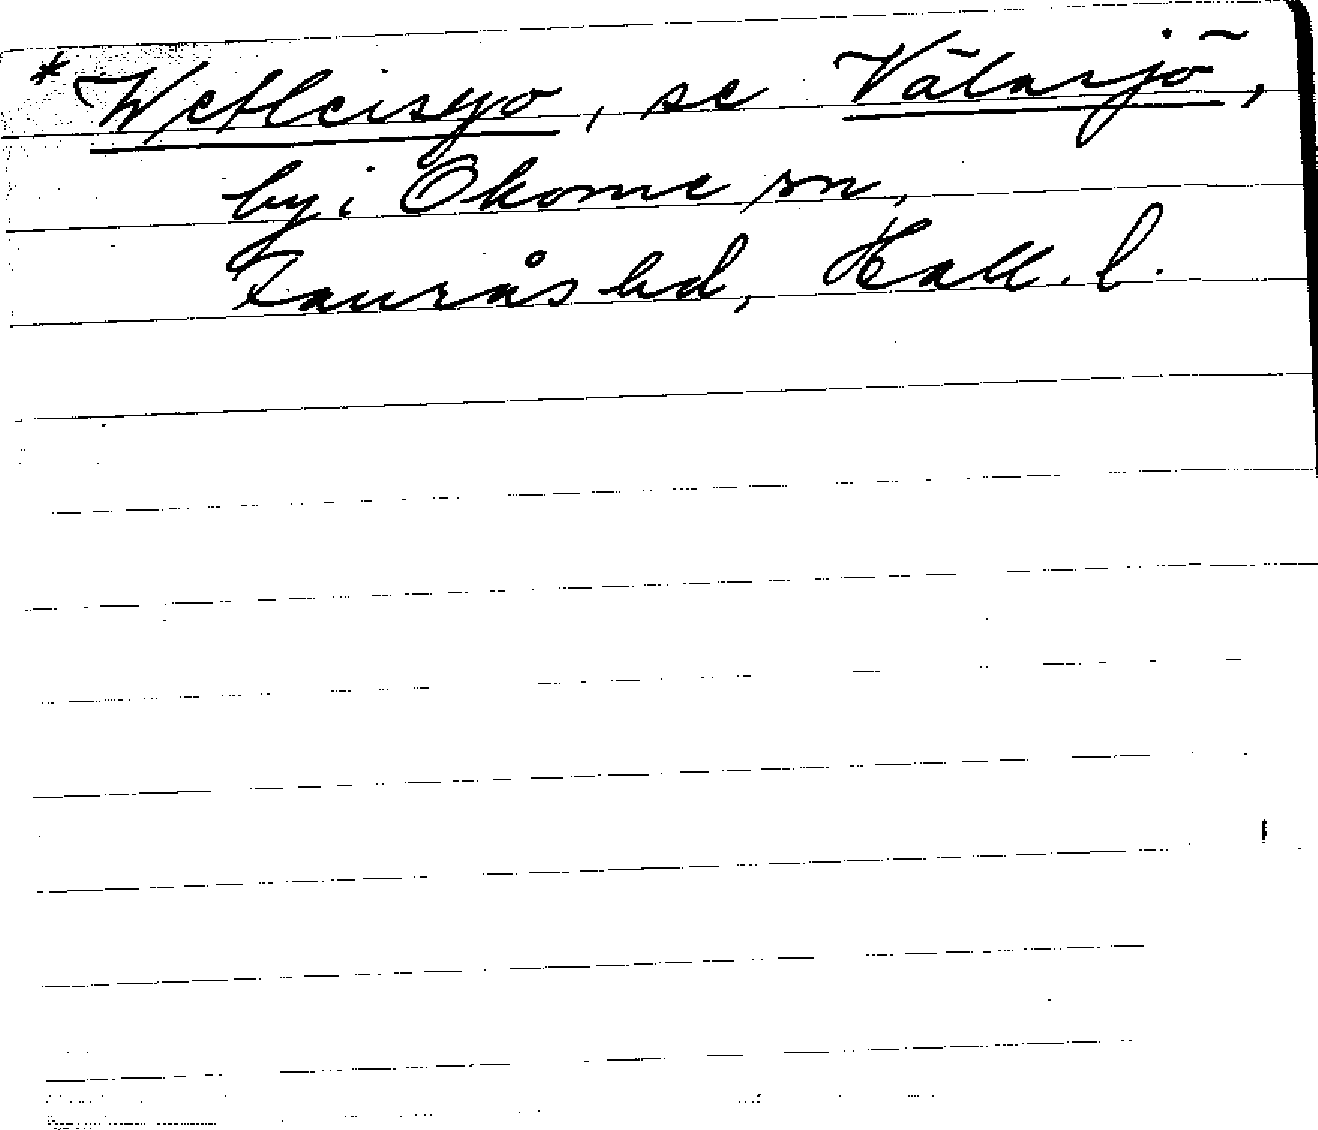 * Wetleisyo, se Vätarjö,
by i Okome sn,
Faurås hd, Hall. l.